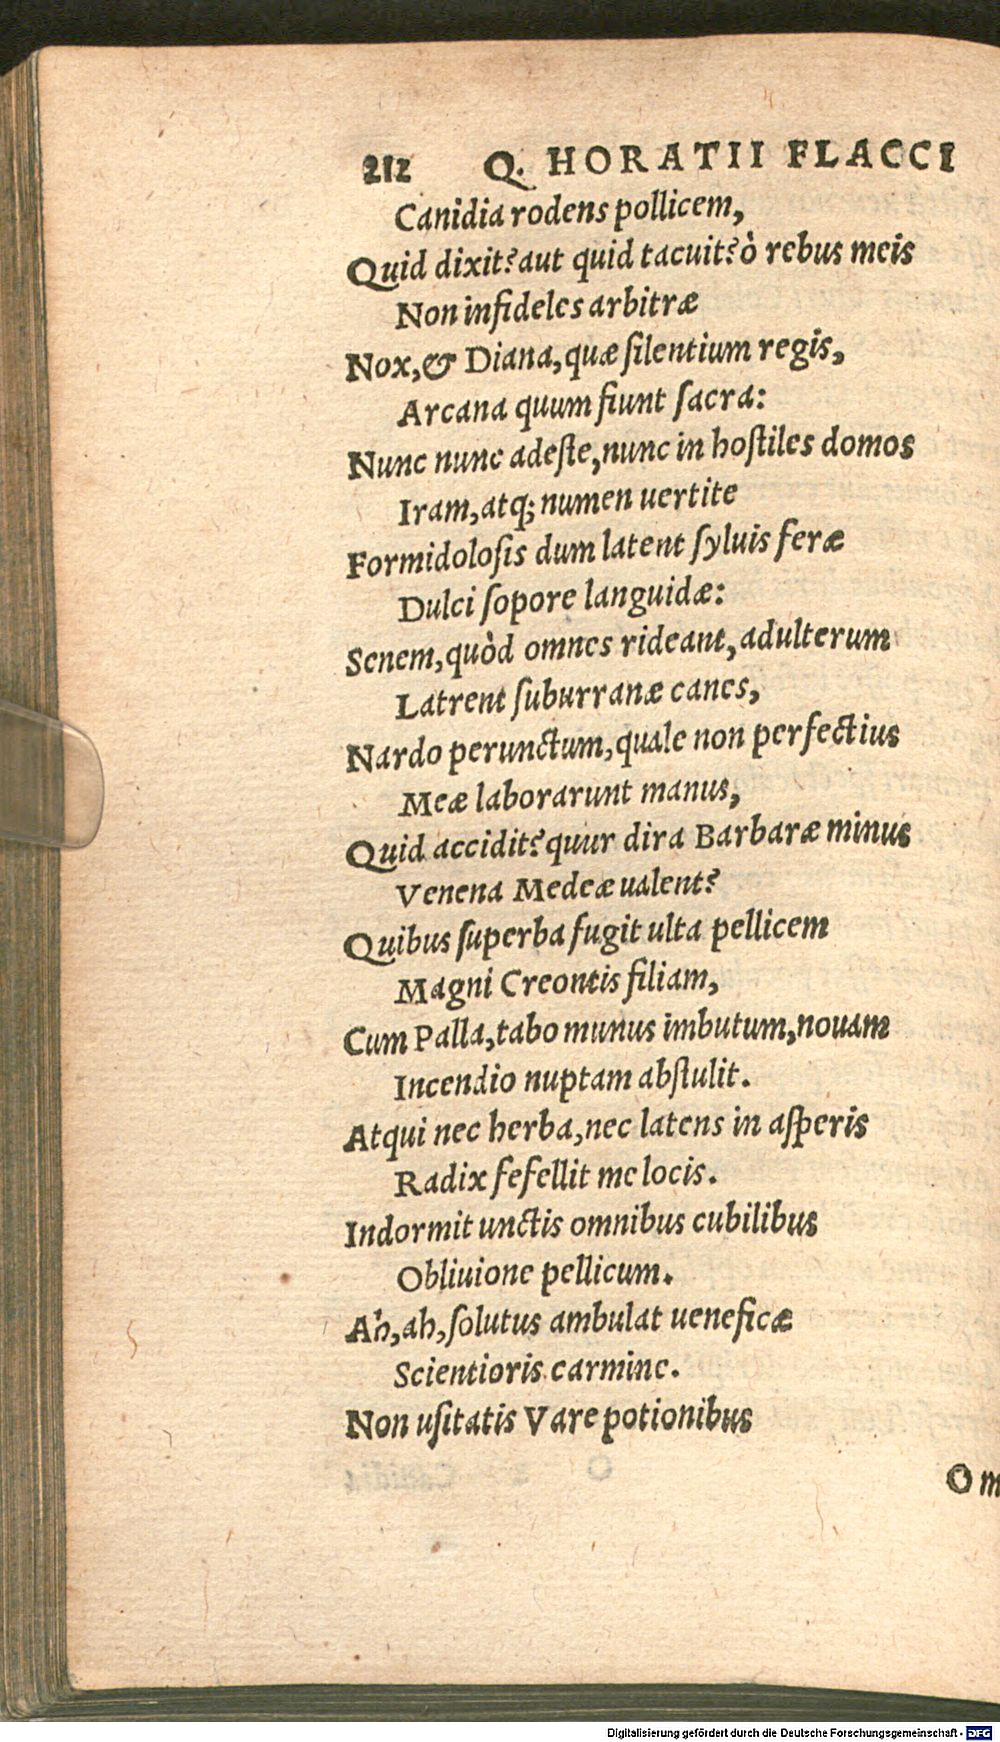 212 Q. HORATII FLACCI
Canidia rodens pollicem,
Quid dixit? aut quid tacuit? ò rebus meis
Non infideles arbitræ
Nox, & Diana, quæ ſilentium regis,
Arcana quum fiunt ſacra:
Nunc nunc adeſte, nunc in hoſtiles domos
Iram, atq; numen uertite
Formidoloſis dum latent ſyluis feræ
Dulci ſopore languidæ:
Senem, quòd omnes rideant, adulterum
Latrent ſuburranæ canes,
Nardo perunctum, quale non perfectius
Meæ laborarunt manus,
Quid accidit? quur dira Barbaræ minus
Venena Medeæ ualent?
Quibus ſuperba fugit ulta pellicem
Magni Creontis filiam,
Cum Palla, tabo munus imbutum, nouam
Incendio nuptam abſtulit.
Atqui nec herba, nec latens in aſperis
Radix fefellit me locis.
Indormit unctis omnibus cubilibus
Obliuione pellicum.
Ah, ah, ſolutus ambulat ueneficæ
Scientioris carmine.
Non uſitatis Vare potionibus
Om
Digitalisierung gefördert durch die Deutsche Forschungsgemeinschaft - DFG